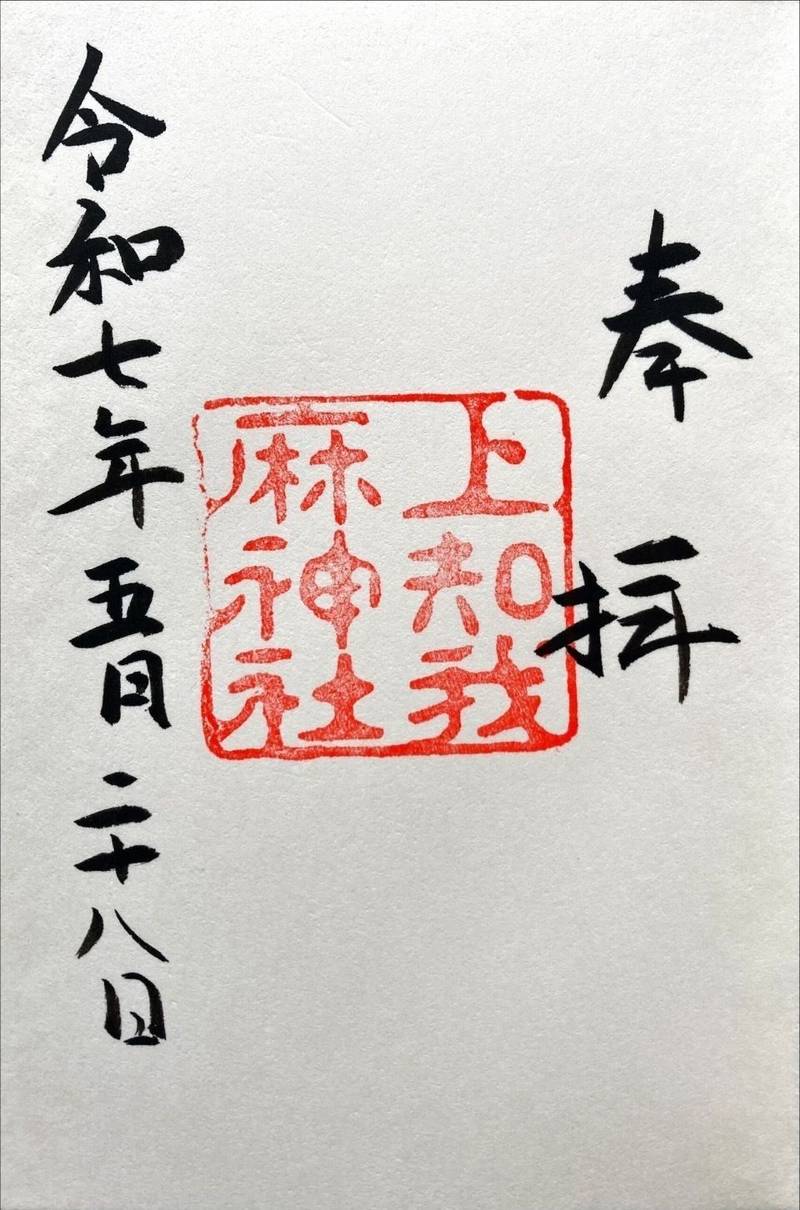 奉拝
上知我
麻神社
令和七年五月二十八日